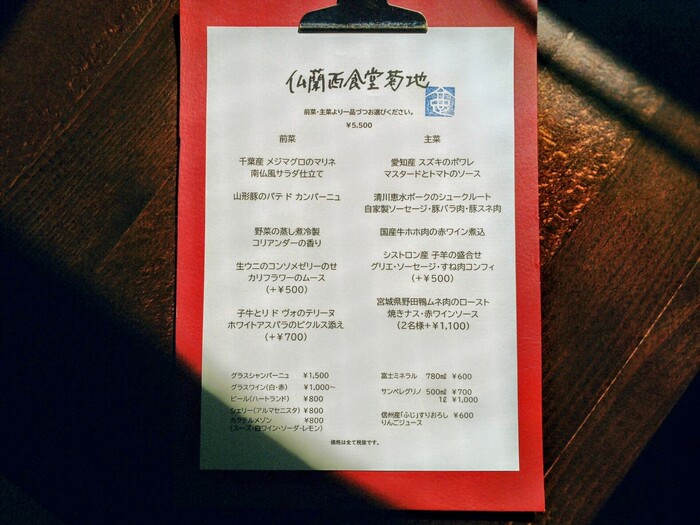 仏蘭西食堂菊地
前菜・主菜より一品づつお選びください。
¥5,500
前菜
千葉産 メジマグロのマリネ
南仏風サラダ仕立て
山形豚のパテ ド カンパーニュ
野菜の蒸し煮冷製
コリアンダーの香り
生ウニのコンソメゼリーのせ
カリフラワーのムース
(+¥500)
子牛とリ ド ヴォのテリーヌ
ホワイトアスパラのピクルス添え
(+¥700)
主菜
愛知産 スズキのポワレ
マスタードとトマトのソース
清川恵水ポークのシュークルート
自家製ソーセージ・豚バラ肉・豚スネ肉
国産牛ホホ肉の赤ワイン煮込
シストロン産 子羊の盛合せ
グリエ・ソーセージ・すね肉コンフィ
(+¥500)
宮城県野田鴨ムネ肉のロースト
焼きナス・赤ワインソース
(2名様+¥1,100)
グラスシャンパーニュ ¥1,500
グラスワイン(白・赤) ¥1,000～
ビール(ハートランド) ¥800
シェリー(アルマセニスタ) ¥800
カクテルメゾン ¥800
(スーズ・白ワイン・ソーダ・レモン)
富士ミネラル 780㎖ ¥600
サンペレグリノ 500㎖ ¥700
1ℓ ¥1,000
信州産「ふじ」すりおろし ¥600
りんごジュース
価格は全て税抜です。